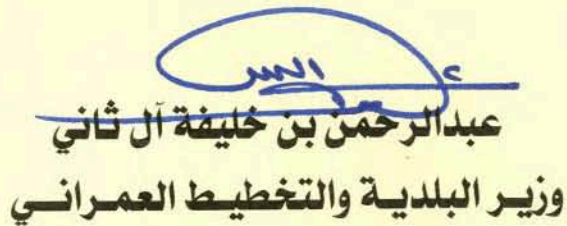 عبدالرحمن بن خليفة آل ثاني
وزير البلدية والتخطيط العمراني